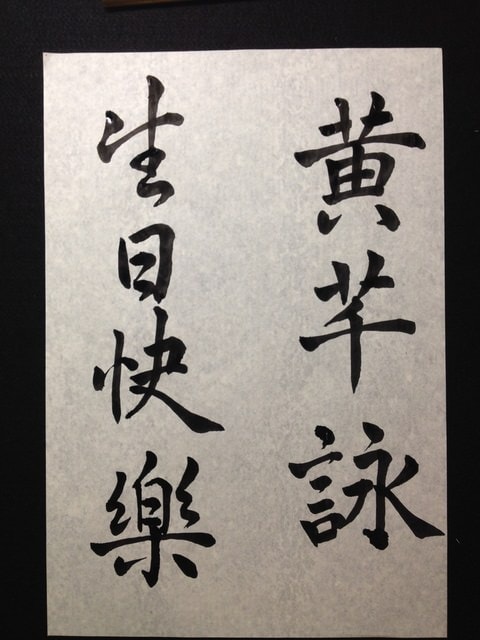 黄芊詠
生日快樂